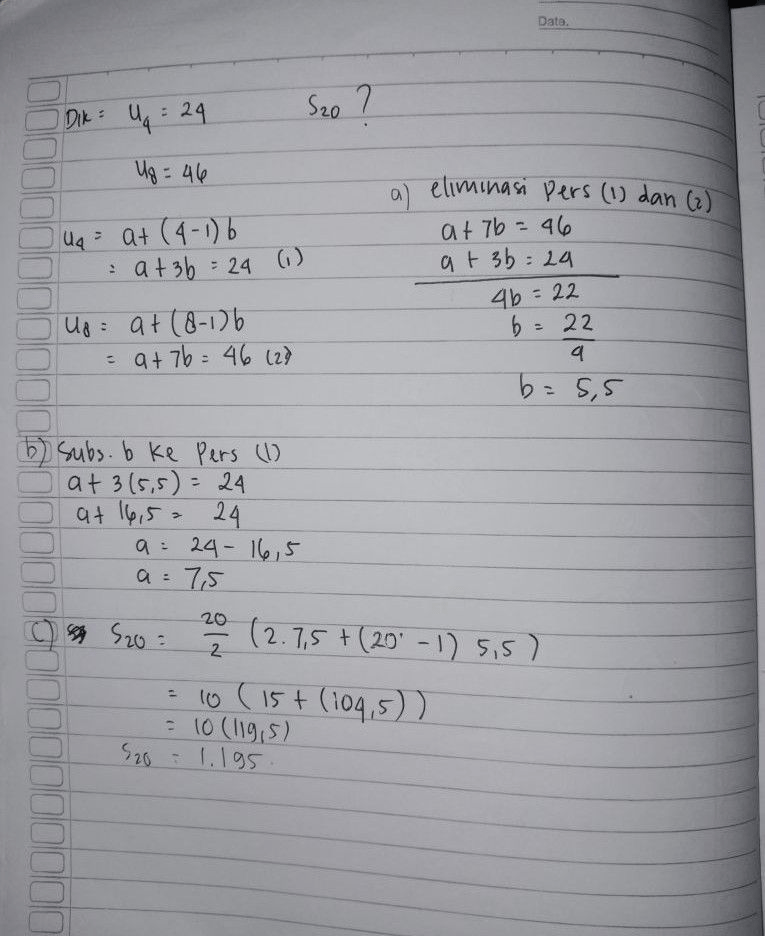 Date.
Dik = U4 = 24 S20 ?
U8 = 46
U4 = a + (4-1) b
= a + 3b = 24 (1)
U8 = a + (8-1) b
= a + 7b = 46 (2)
a) eliminasi Pers (1) dan (2)
a + 7b = 46
a + 3b = 24
4b = 22
b = 22/4
b = 5,5
b) Subs. b ke Pers (1)
a + 3(5,5) = 24
a + 16,5 = 24
a = 24 - 16,5
a = 7,5
c) S20 = 20/2 (2. 7,5 + (20 - 1) 5,5)
= 10 (15 + (104,5))
= 10 (119,5)
S20 = 1.195.